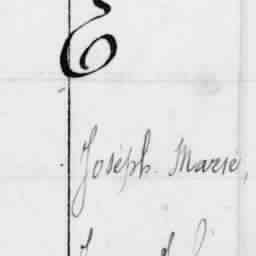 E
Joseph. Marie,